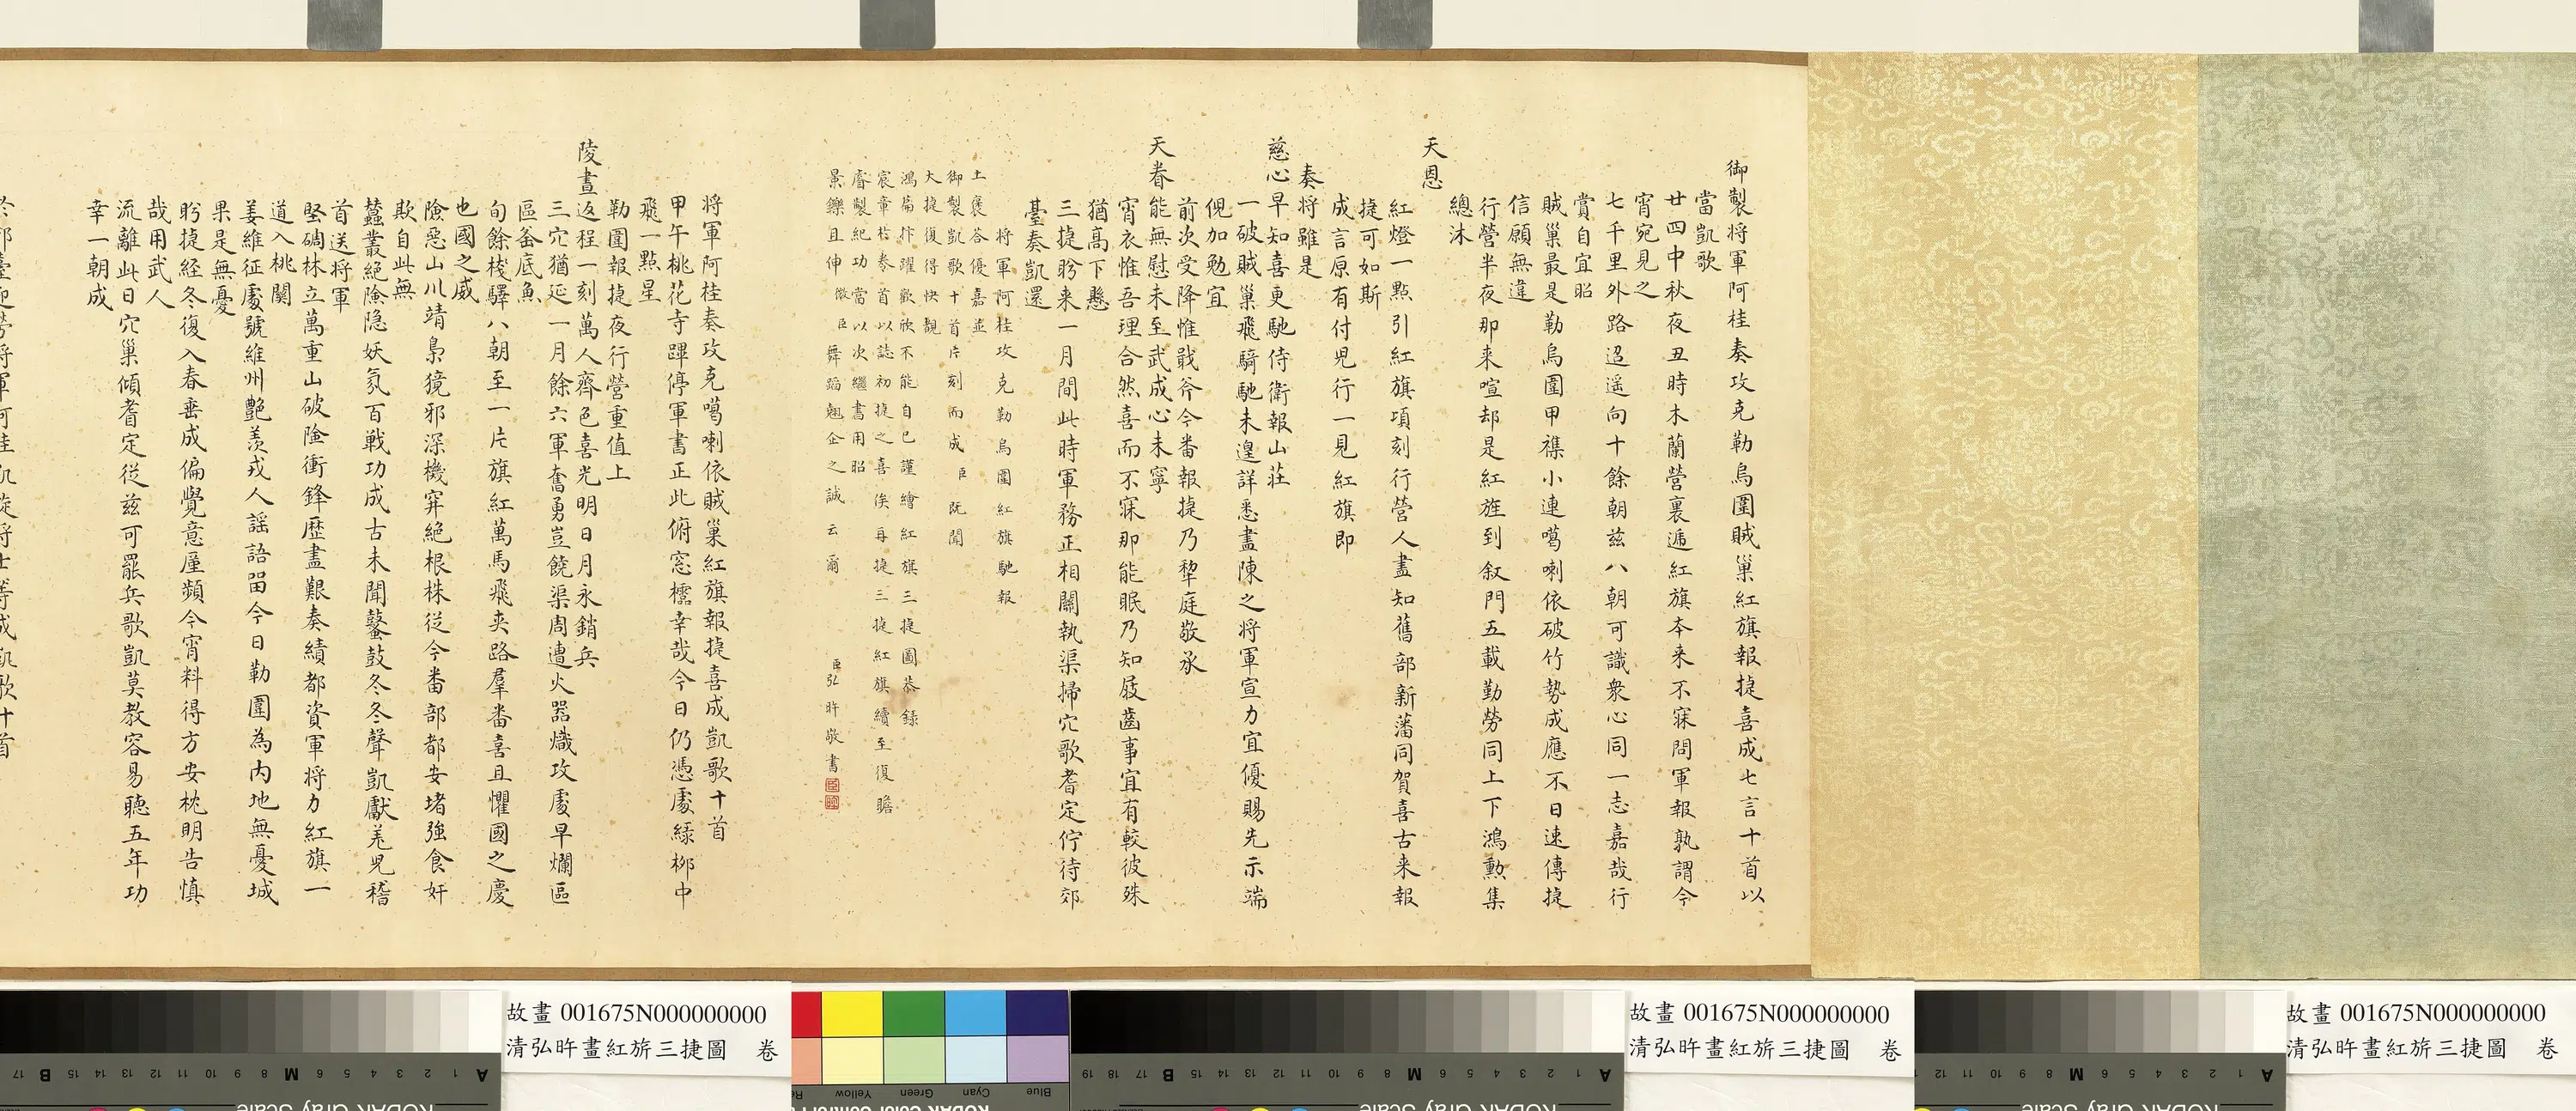 御製將軍阿桂奏攻克勒烏圍賊巢紅旗報捷喜成七言十首以
當凱歌
廿四中秋夜丑時木蘭營裏遞紅旗夲来不寐問軍報孰謂今
宵宛見之
七千里外路迢遥向十餘朝兹八朝可識衆心同一志嘉哉行
賞自宜昭
賊巢最是勒烏圍甲襍小連噶喇依破竹勢成應不日速傳捷
信願無違
行營半夜那来喧却是紅旌到叙門五載勤勞同上下鴻勲集
總沐
天恩
紅燈一點引紅旗頃刻行營人盡知舊部新藩同賀喜古来報
捷可如斯
成言原有付児行一見紅旗即
奏將雖是
慈心早知喜更馳侍衛報山莊
一破賊巢飛騎馳未遑詳悉盡陳之将軍宣力宜優賜先示端
倪加勉宜
前次受降惟戢斧今番報捷乃犂庭敬承
天眷能無慰未至武成心未寧
宵衣惟吾理合然喜而不寐那能眠乃知屐齒事宜有較彼殊
猶高下懸
三捷盻来一月間此時軍務正相關執渠掃穴歌耆定佇待郊
臺奏凱還
將軍阿桂攻克勒烏圍紅旗馳報
上褒答優嘉並
御製凱歌十首片刻而成臣既聞
大捷復得快覩
鴻篇忭躍歡欣不能自已謹繪紅旗三捷圖恭録
宸章於卷首以誌初捷之喜俟再捷三捷紅旗續至復瞻
睿製紀功當以次繼書用昭
景鑠且伸微臣舞蹈翹企之誠云爾
臣弘旿敬書
將軍阿桂奏攻克噶喇依賊巢紅旗報捷喜成凱歌十首
甲午桃花寺蹕停軍書正此俯窓櫺幸哉今日仍憑處緑栁中
飛一點星
勒圍報捷夜行營重值上
陵晝返程一刻萬人齊色喜光明日月永銷兵
三穴猶延一月餘六軍奮勇豈饒渠周遭火器熾攻處早爛區
區釜底魚
旬餘棧驛八朝至一片旗紅萬馬飛夾路羣番喜且懼國之慶
也國之威
險惡山川靖梟獍邪深機穽絕根株從今番部都安堵強食奸
欺自此無
蠶叢絕險隐妖氛百戰功成古未聞鼛鼓冬冬聲凱獻羌児稽
首送将軍
堅碉林立萬重山破險衝鋒歷盡艱奏績都資軍将力紅旗一
道入桃關
姜維征處號維州艷羨戎人謡語留今日勒圍為内地無憂城
果是無憂
盻捷經冬復入春垂成偏覺意廑頻今宵料得方安枕明告慎
哉用武人
流離此日穴巢傾耆定從兹可罷兵歌凱莫教容易聽五年功
幸一朝成
於郊臺迎勞将軍阿桂凱旋将士等成凱歌十首
故畫 001675N000000000
清弘旿畫紅旂三捷圖 卷
故畫 001675N000000000
清弘旿畫紅旂三捷圖 卷
故畫 001675N000000000
清弘旿畫紅旂三捷圖 卷
Blue
Cyan
Green
Yellow
KODAK Gray Scale
KODAK Gray Scale
KODAK Gray Scale